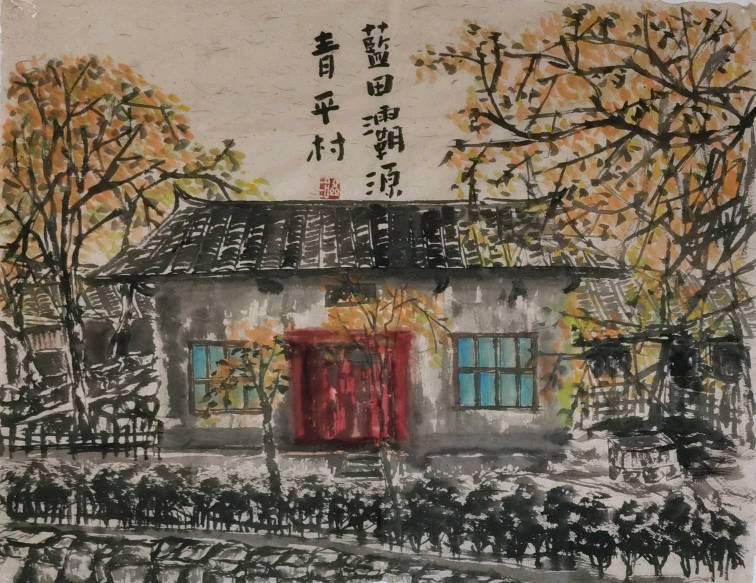 藍田灞源
青平村